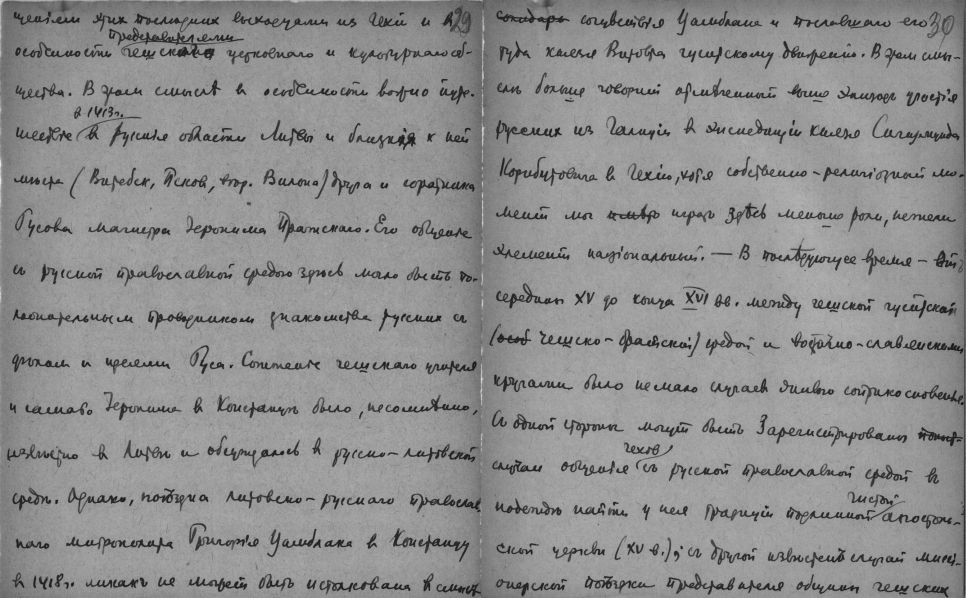 29
щенiями этих последних выходцами из Чехiи и в
представителями
особенности чешскаго церковнаго и культурнаго об-
щества. В этом смысле в особенности важно путе-
в 1413 г.
шествiе в русскiе области Литвы и близкiя к ней
места (Витебск, Псков, втор. Вильна) друга и соратника
Гусова магистра Iеронима Пражскаго. Его общенiе
съ русской православной средою здесь могло быть по-
ложительным проводником знакомства русских съ
духом и идеями Гуса. Сожженiе чешскаго учителя
и самаго Iеронима в Констанце было, несомненно,
известно в Литве и обсуждалось в русско-литовской
среде. Однако, поездка литовско-русскаго православ-
наго митрополита Григорiя Цамблака в Констанцу
в 1418 г. никакъ не может быть истолкована в смысле
30
сочувствiя Цамблака и пославшаго его
туда князя Витовта гуситскому движенiю. В этом смы-
сле больше говорит отмеченный выше эпизод участiя
русских из Галицiи в экспедицiи князя Сигизмунда
Корибутовича в Чехiю, хотя собственно-религiозный мо-
мент мог играть здесь меньшо роли, нежели
элемент нацiональный. — В последующее время —
середины XV до конца XVI вв. между чешской гуситской
(особ чешско-братской) средой и восточно-славянскими
кругами было не мало случаев живого соприкосновенiя.
Съ одной стороны могут быть зарегистрированы
чехов
случаи общенiя съ русской православной средой в
чистой
надежде найти у нея традицiи подлинной апостоль-
ской церкви (XV в.); съ другой известен случай мисс-
онерской поездки представителя общины чешских